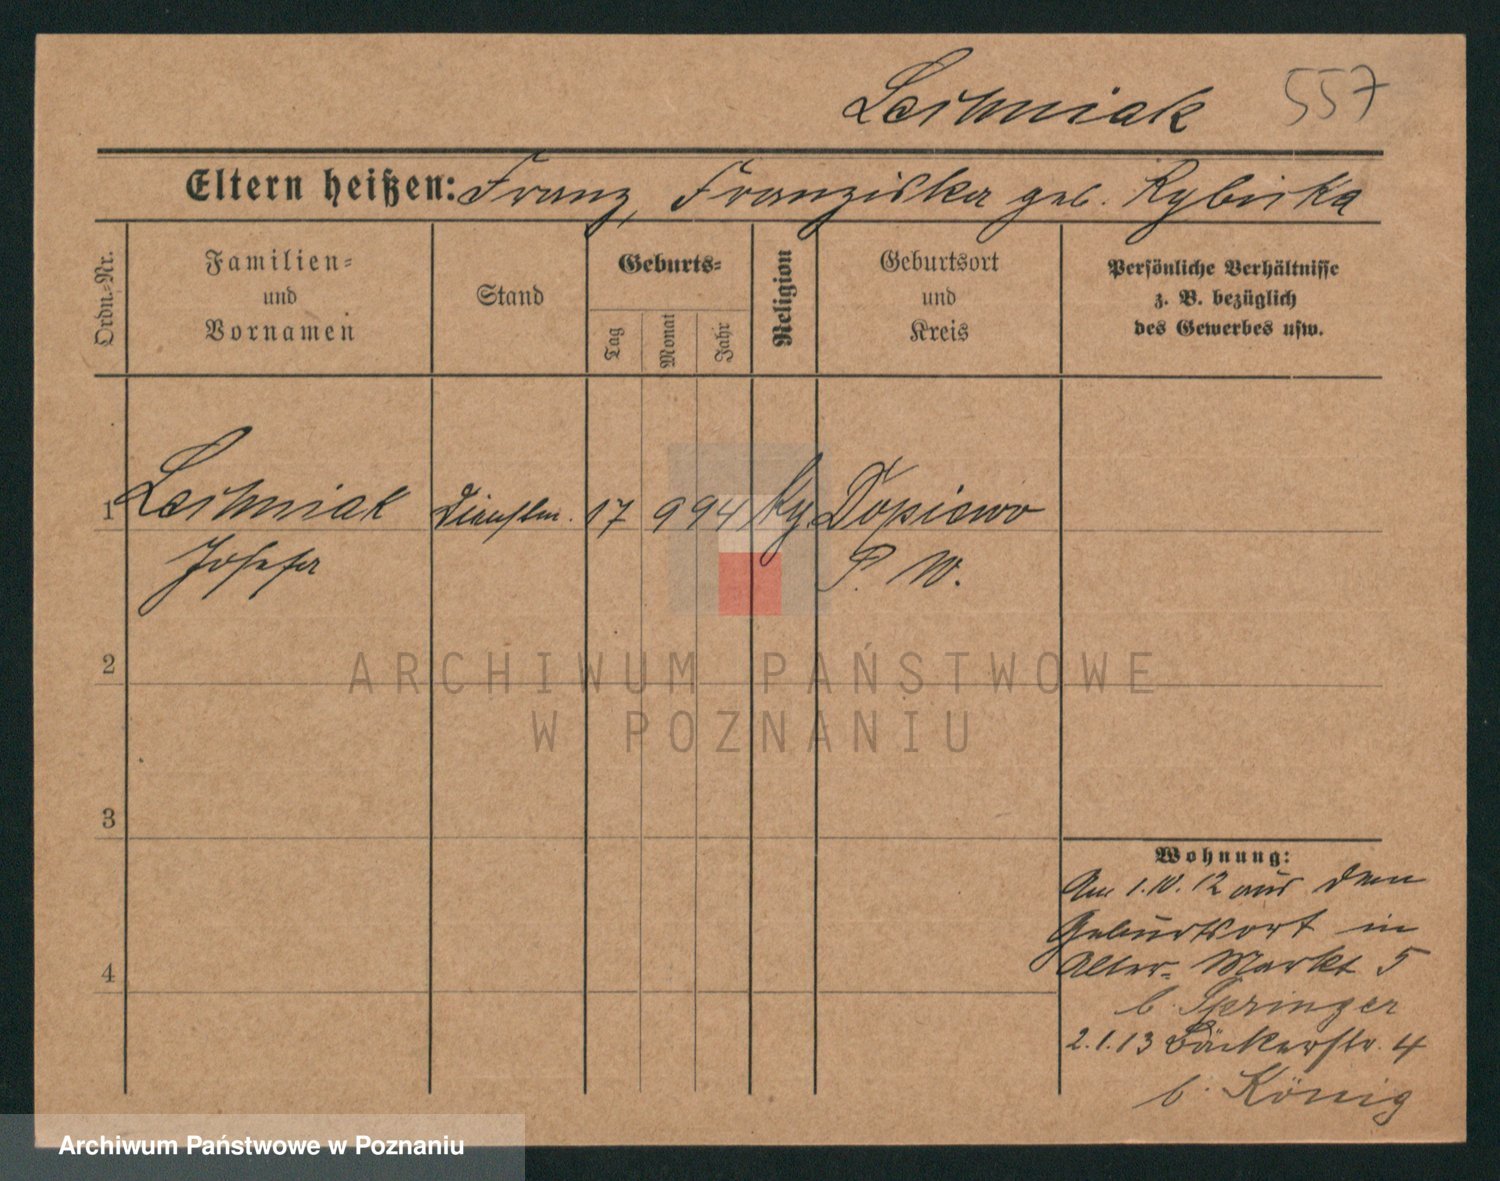 Leśniak 557
Eltern heißen: Franz, Franziska geb. Rybicka
Ordn.-Nr.
Familien-
und
Vornamen
Stand
Geburts-
Tag
Monat
Jahr
Religion
Geburtsort
und
Kreis
Persönliche Verhältnisse
z. B. bezüglich
des Gewerbes usw.
1 Dienstm. 17 9 94 Dopiewo
Josefa P. W.
2
3
4
Wohnung:
Am 1.10.12 aus dem
Geburtsort in
Alter-Markt 5
b. Springer
2.1.13 Bäckerstr. 4
b. König
ARCHIWUM PAŃSTWOWE
W POZNANIU
Archiwum Państwowe w Poznaniu